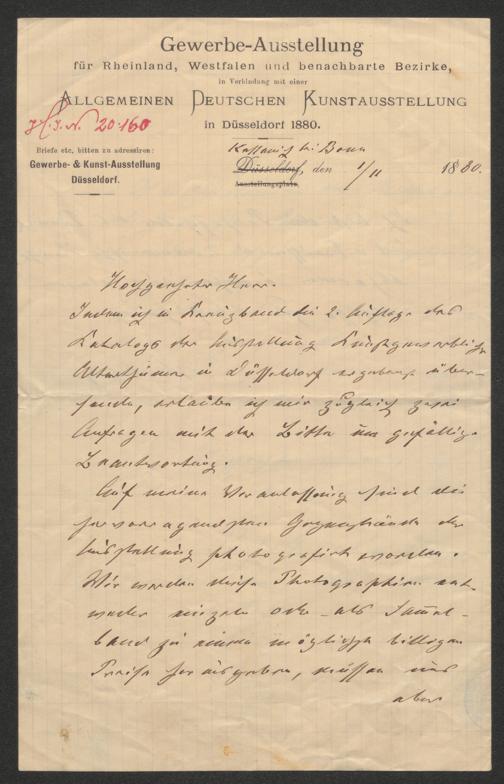 Gewerbe-Ausstellung
für Rheinland, Westfalen und benachbarte Bezirke,
in Verbindung mit einer
ALLGEMEINEN DEUTSCHEN KUNSTAUSSTELLUNG
in Düsseldorf 1880.
20.160
Briefe etc. bitten zu adressiren:
Gewerbe- & Kunst-Ausstellung
Düsseldorf.
bei Bonn
Düsseldorf, den 1/11 1880.
Ausstellungsplatz.
Hochgeehrter Herr.
Indem ich in Kreuzband die 2. Auflage des
Katalogs der Ausstellung kunstgewerblicher
Altertümer in Düsseldorf ergebenst über-
sende, erlaube ich mir zugleich zwei
Anfragen mit der Bitte um gefällige
Beantwortung.
Auf meine Veranlassung sind die
hervorragendsten Gegenstände der
Ausstellung photografirt worden.
Wir werden diese Photographien ent-
weder einzeln oder als Sammel-
band zu einem möglichst billigen
Preise herausgeben, müssen uns
aber